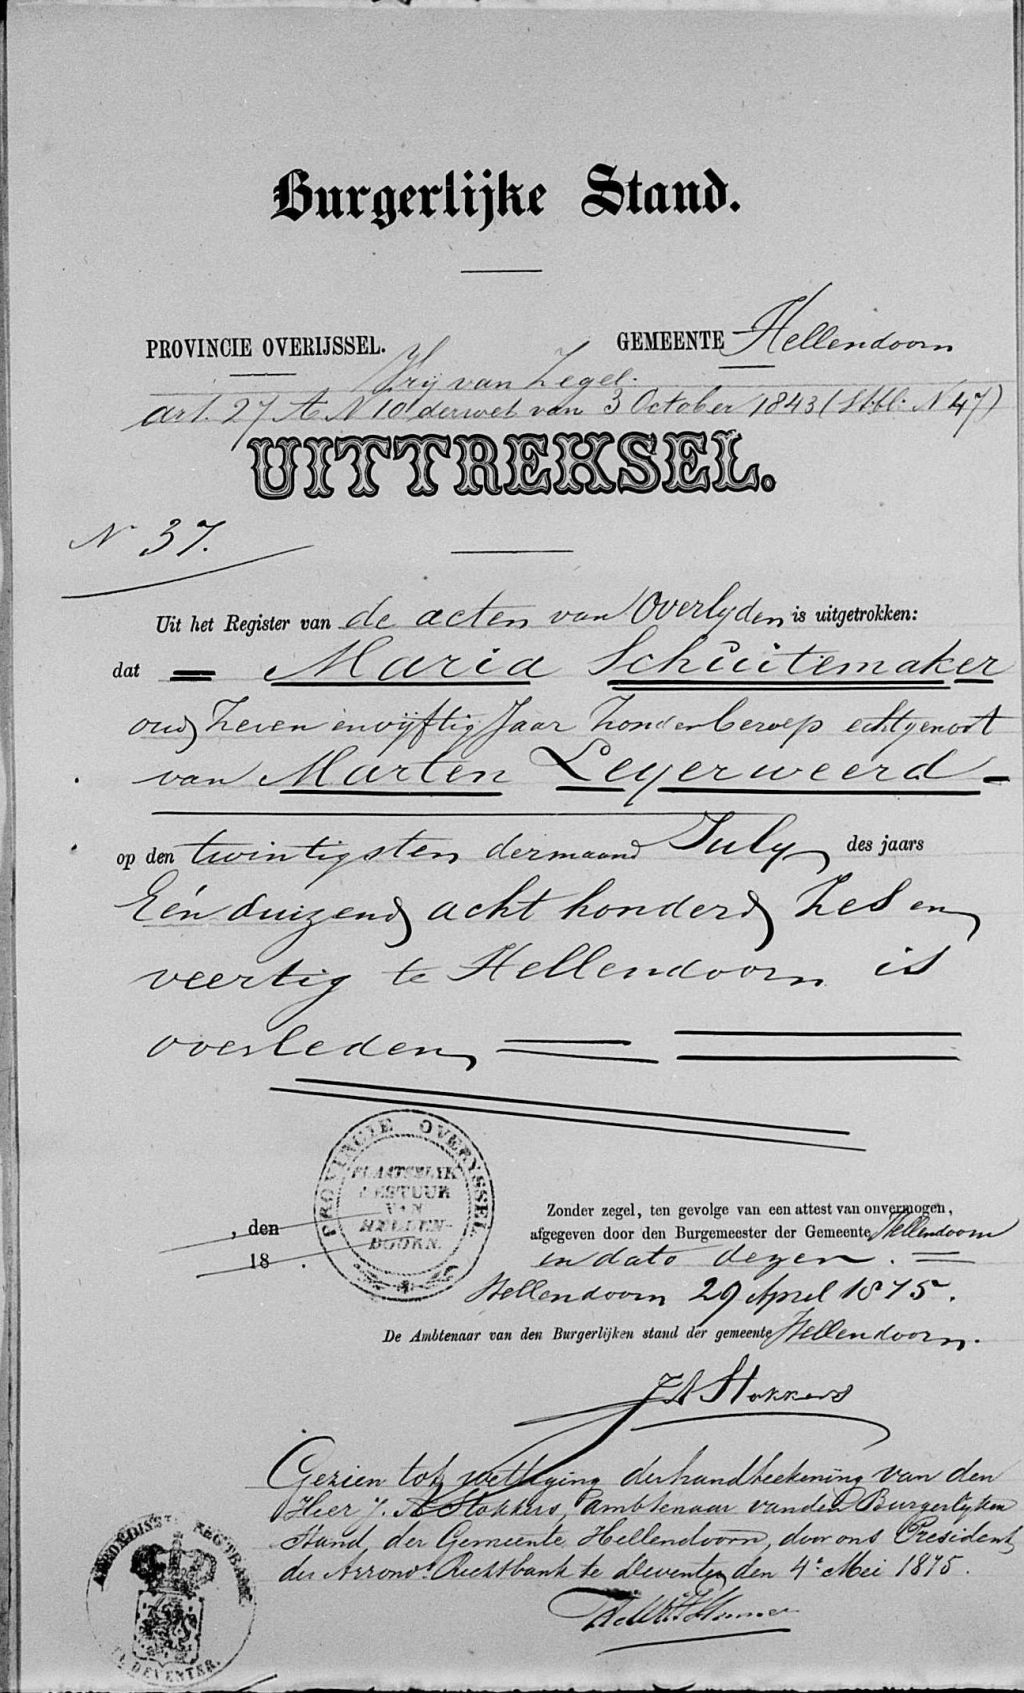 Burgerlijke Stand.
PROVINCIE OVERIJSSEL. GEMEENTE Hellendoorn
Vrij van Zegel.
art. 27 A N 10 der wet van 3 October 1843 (St.bl. N 47)
UITTREKSEL.
N 37.
Uit het Register van de acten van Overlyden is uitgetrokken:
dat Maria Schuitemaker
oud zeven en vijftig Jaar zonder beroep echtgenoot
van Marten Leyerweerd
op den twintigsten der maand July des jaars
Eén duizend acht honderd zes en
veertig te Hellendoorn is
overleden
PROVINCIE OVERYSSEL
PLAATSELYK
BESTUUR
VAN
HELLEN-
DOORN.
, den
18 .
Zonder zegel, ten gevolge van een attest van onvermogen,
afgegeven door den Burgemeester der Gemeente Hellendoorn
in dato dezen.
Hellendoorn 29 April 1875.
De Ambtenaar van den Burgerlijken stand der gemeente Hellendoorn.
J A Stokkers
Gezien tot wettiging der handteekening van den
Heer J. A Stokkers, ambtenaar van den Burgerlyken
Stand der Gemeente Hellendoorn, door ons President
der Arrond. Rechtbank te Deventer den 4 Mei 1875.
ARRONDISST. REGTBANK
TE DEVENTER.